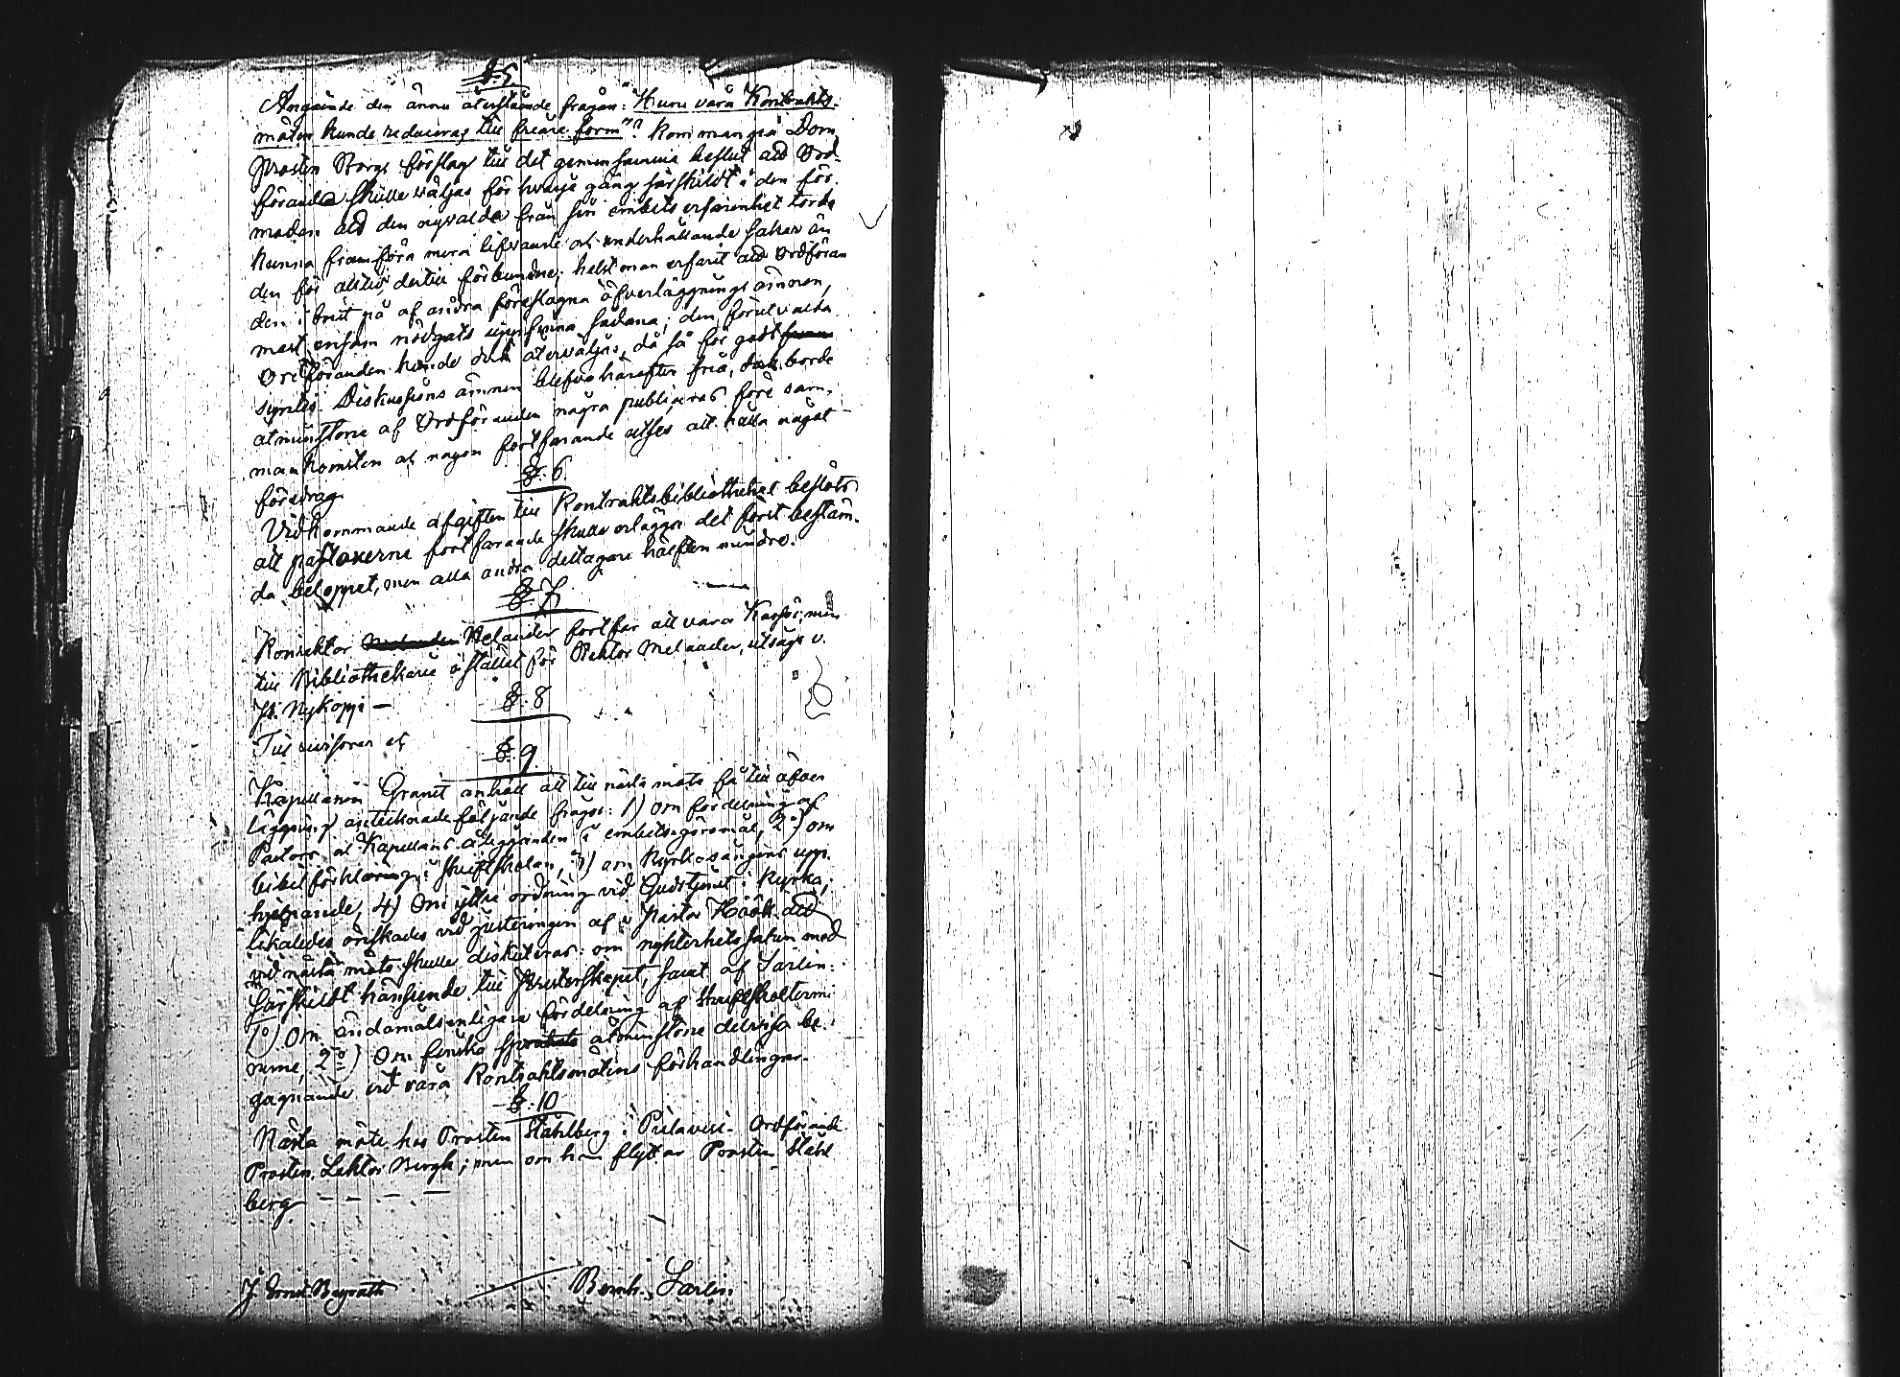 §. 5
Angående den ännu återstående frågan: "Huru våra Kontrakts-
möten kunde reduceras till friare form"? kom man på Dom
Prosten Borgs förslag till det gemensamma beslut att Ord-
förande skulle väljas för hvarje gång särskildt i den för-
modan att den nyvalde från sin embets erfarenhet torde
kunna framföra mera lifvande och underhållande saker än
den för alltid dertill förbundne; helst man erfarit att Ordföran
den i brist på af andra föreslagna öfverläggnings ämnen,
mest ensam nödgats uppfinna sådana; den förut valda
Ordföranden kunde ock återväljas, då så för godt
synes. Diskussions ämnen blefvo härefter fria, dock borde
åtminstone af Ordföranden några publiceras före sam-
mankomsten och någon fortfarande utses att hålla något
föredrag
§. 6
Vidkommande afgiften till Kontraktsbibliotheket beslöts
att pastorerne fortfarande skulle erlägga det förut bestäm-
da beloppet, men alla andra deltagare hälften mindre.
§. 7
Konrektor Helander fortfar att vara Kassör, men
till Bibliothekarie i stället för Rektor Melander, utsågs v.
P. Nykopp —
§. 8
Till revisorer
§. 9
Kapellanen Granit anhöll att till nästa möte få till öfver
läggning antecknade följande frågor: 1) om fördelning af
Pastors och Kapellans åligganden i embetsgöromål, 2) om
bibelförklaring i skriftskolan, 3) om Kyrkosångens upp-
hjelpande, 4) Om yttre ordning vid Gudstjenst i Kyrka;
likaledes önskades vid justeringen af Pastor Höök att
vid nästa möte skulle diskuteras: om nykterhetssaken med
särskildt hänseende till Presterskapet, samt af Sarlin:
1o) Om ändamålsenligare fördelning af skriftskoltermi
nerne, 2o) Om finska språkets åtminstone delvisa be-
gagnande vid våra Kontraktsmötens förhandlingar.
§. 10
Nästa möte hos Prosten Ståhlberg i Pielavesi. Ordförande
Prosten, Lektor Bergh; men om han flyttar Prosten Ståhl
berg — — — —
J. Bernh. Sarlin